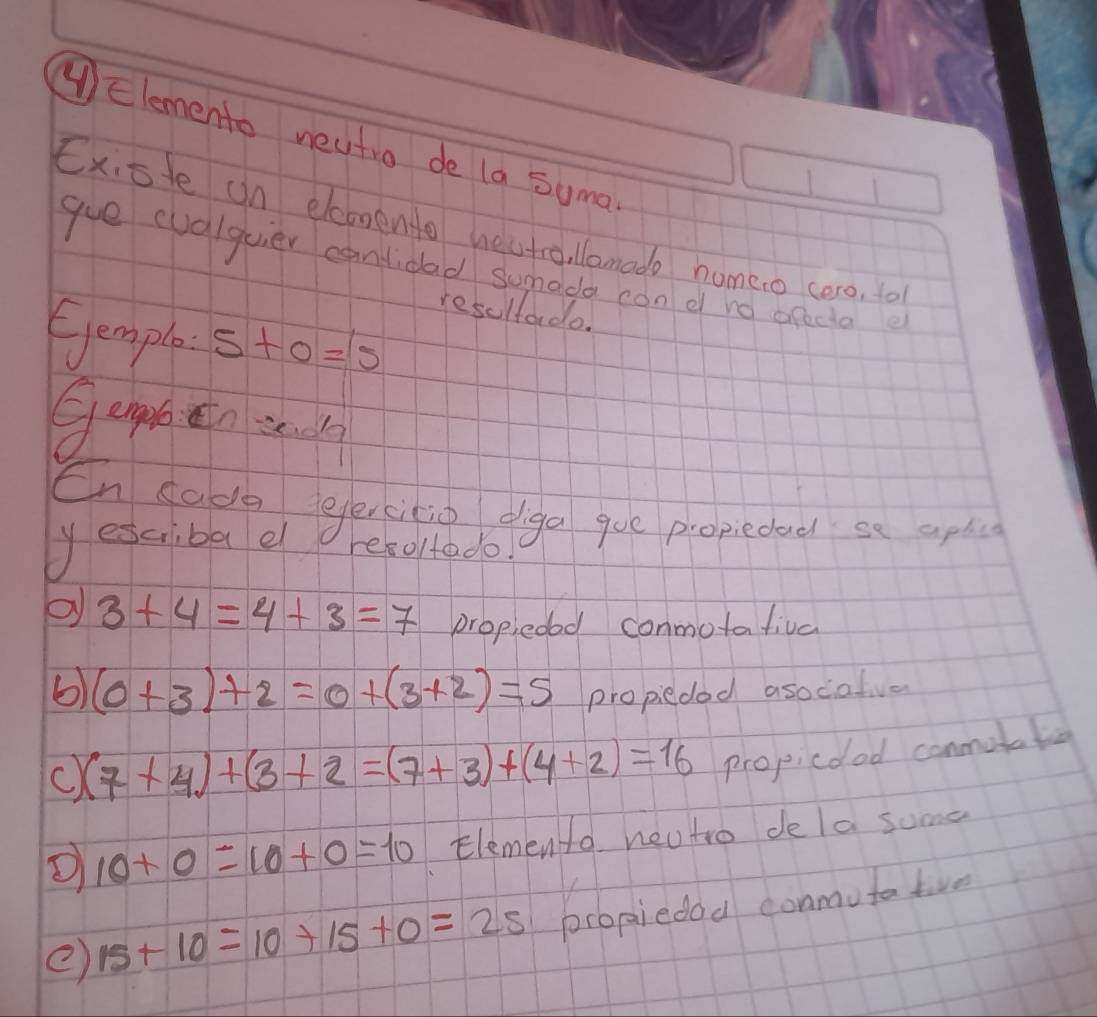 ④ Elemento neutro de la suma.
Existe un elemento neutro, llamado numero cero, tal
que cualquier cantidad sumada con el no afecta el
resultado.
Ejemplo: 5 + 0 = 5
Ejemplo: En cada
En cada ejercicio diga que propiedad se aplica
y escriba el resoltado.
a) 3 + 4 = 4 + 3 = 7 propiedad conmotativa
b) (0 + 3) + 2 = 0 + (3 + 2) = 5 propiedad asociativa
c) (7 + 4) + (3 + 2 = (7 + 3) + (4 + 2) = 16 propiedad conmutativa
D) 10 + 0 = 10 + 0 = 10 Elemento neutro de la suma
e) 15 + 10 = 10 + 15 + 0 = 25 propiedad conmutativa